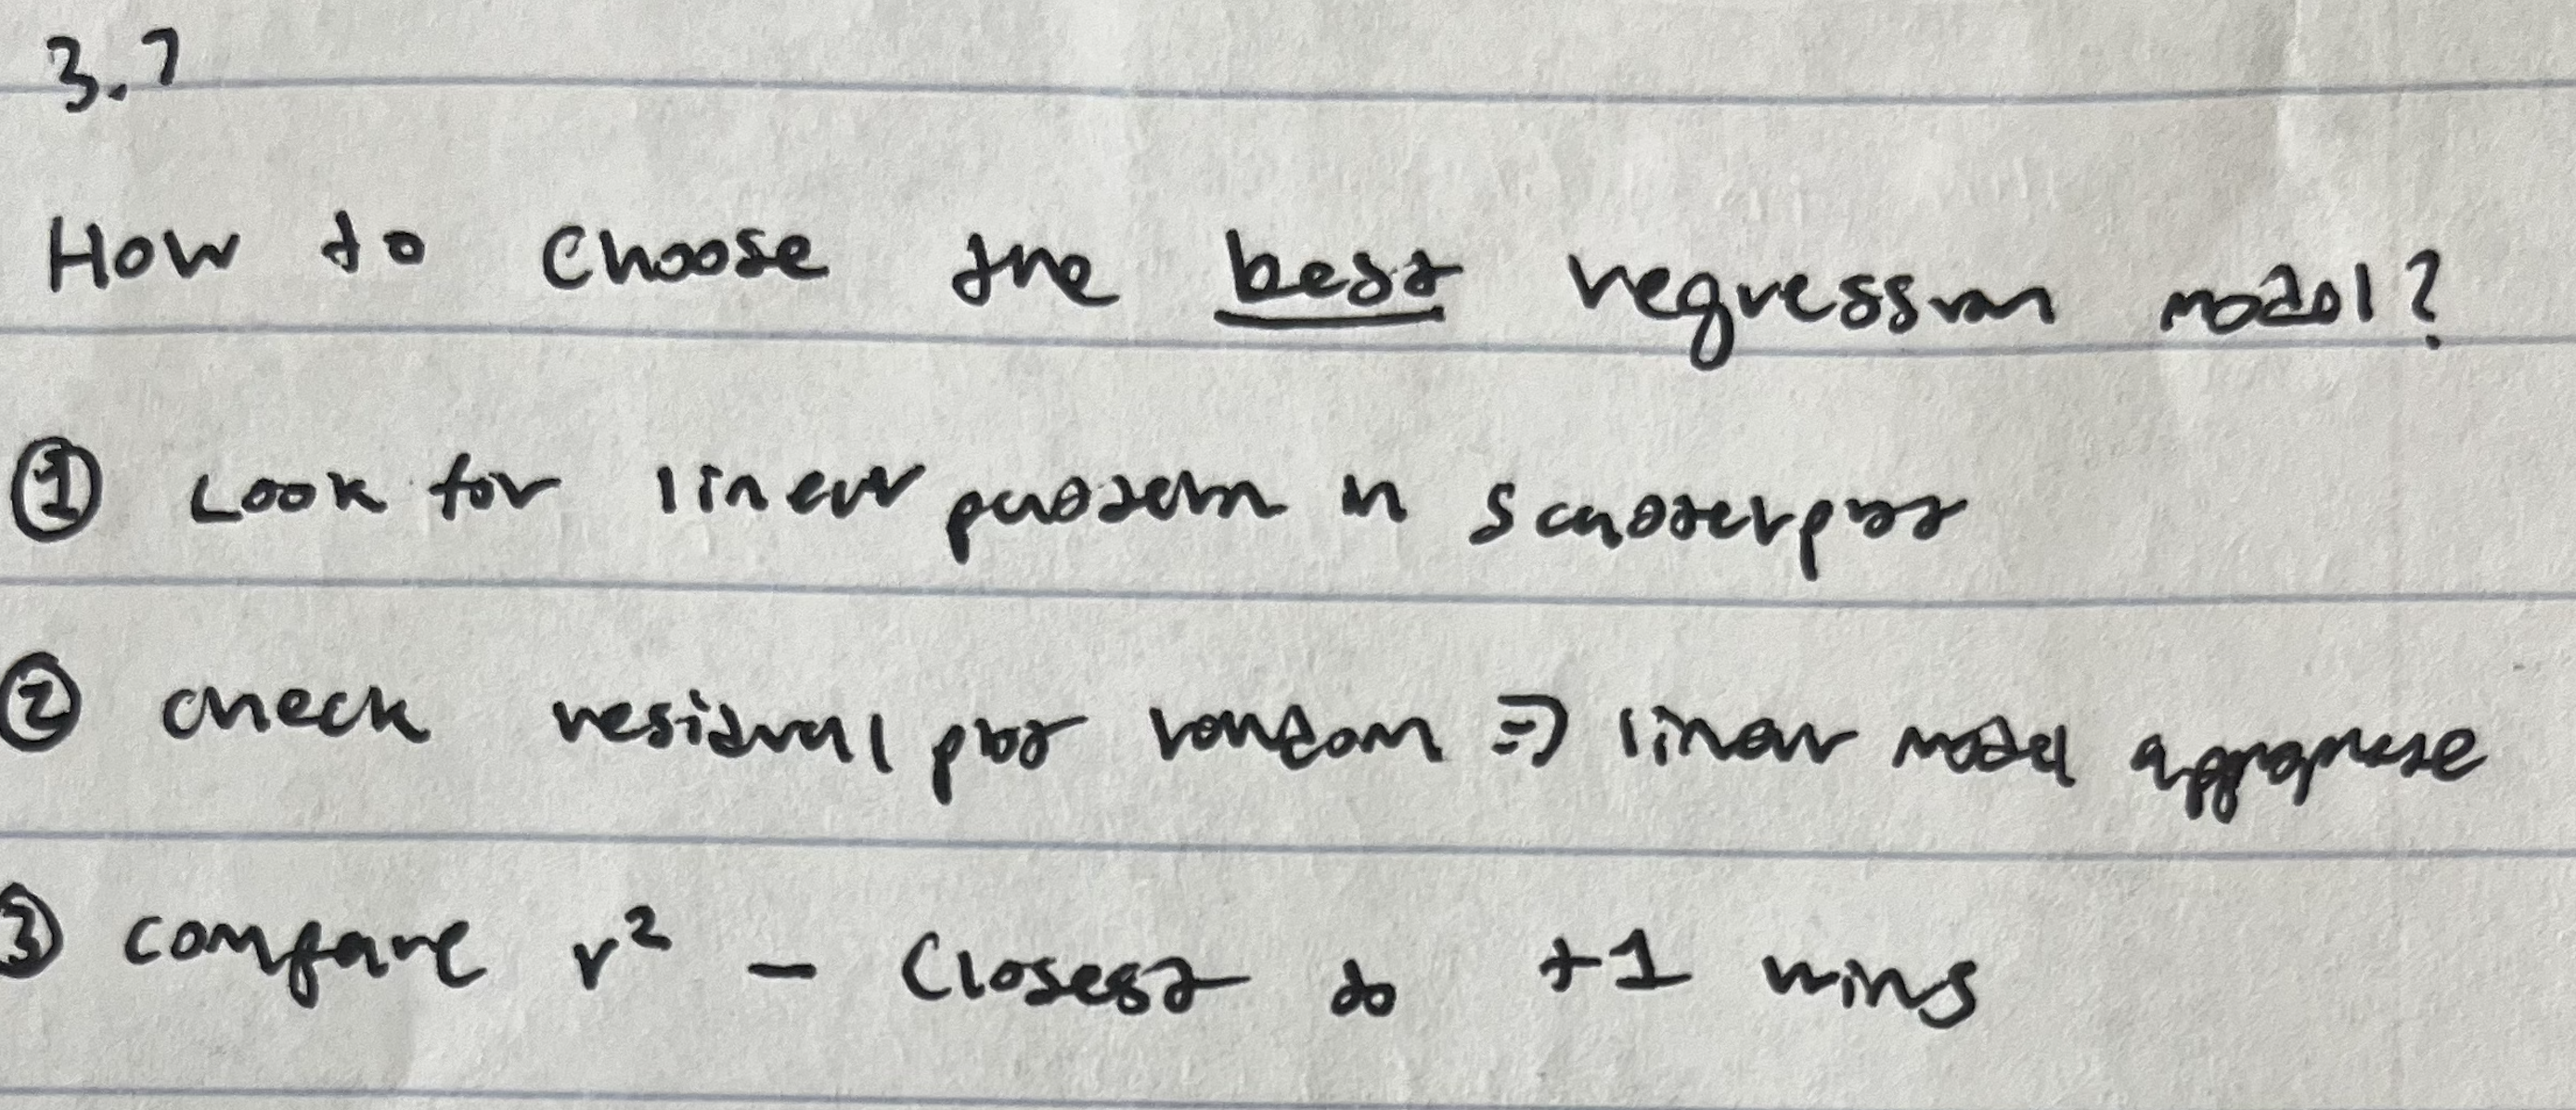 3.7
How to choose the best regression model?
① Look for linear pattern in scatterplot
② check residual plot random => linear model appropriate
③ compare r² - Closest to +1 wins